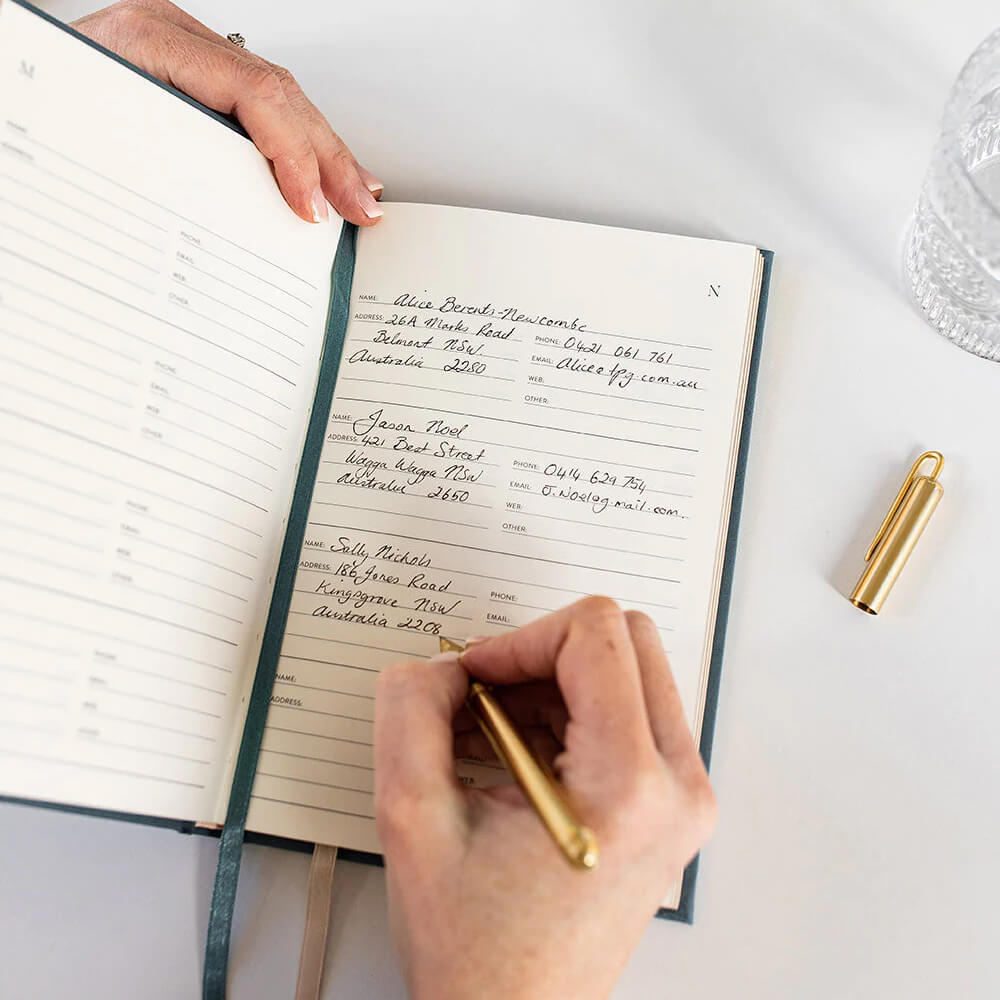 M
NAME:
ADDRESS:
PHONE:
EMAIL:
WEB:
OTHER:
PHONE:
EMAIL:
WEB:
OTHER:
PHONE:
EMAIL:
WEB:
OTHER:
PHONE:
EMAIL:
WEB:
OTHER:
N
NAME: Alice Berents-Newcombe
ADDRESS: 26A Marks Road
Belmont NSW.
Australia 2280
PHONE: 0421 061 761
EMAIL: Alice@tpg.com.au
WEB:
OTHER:
NAME: Jason Noel
ADDRESS: 421 Best Street
Wagga Wagga NSW
Australia 2650
PHONE: 0414 629 754
EMAIL: J.Noel@g.mail.com.
WEB:
OTHER:
NAME: Sally Nichols
ADDRESS: 186 Jones Road
Kingsgrove NSW
Australia 2208
PHONE:
EMAIL:
NAME:
ADDRESS:
WEB: